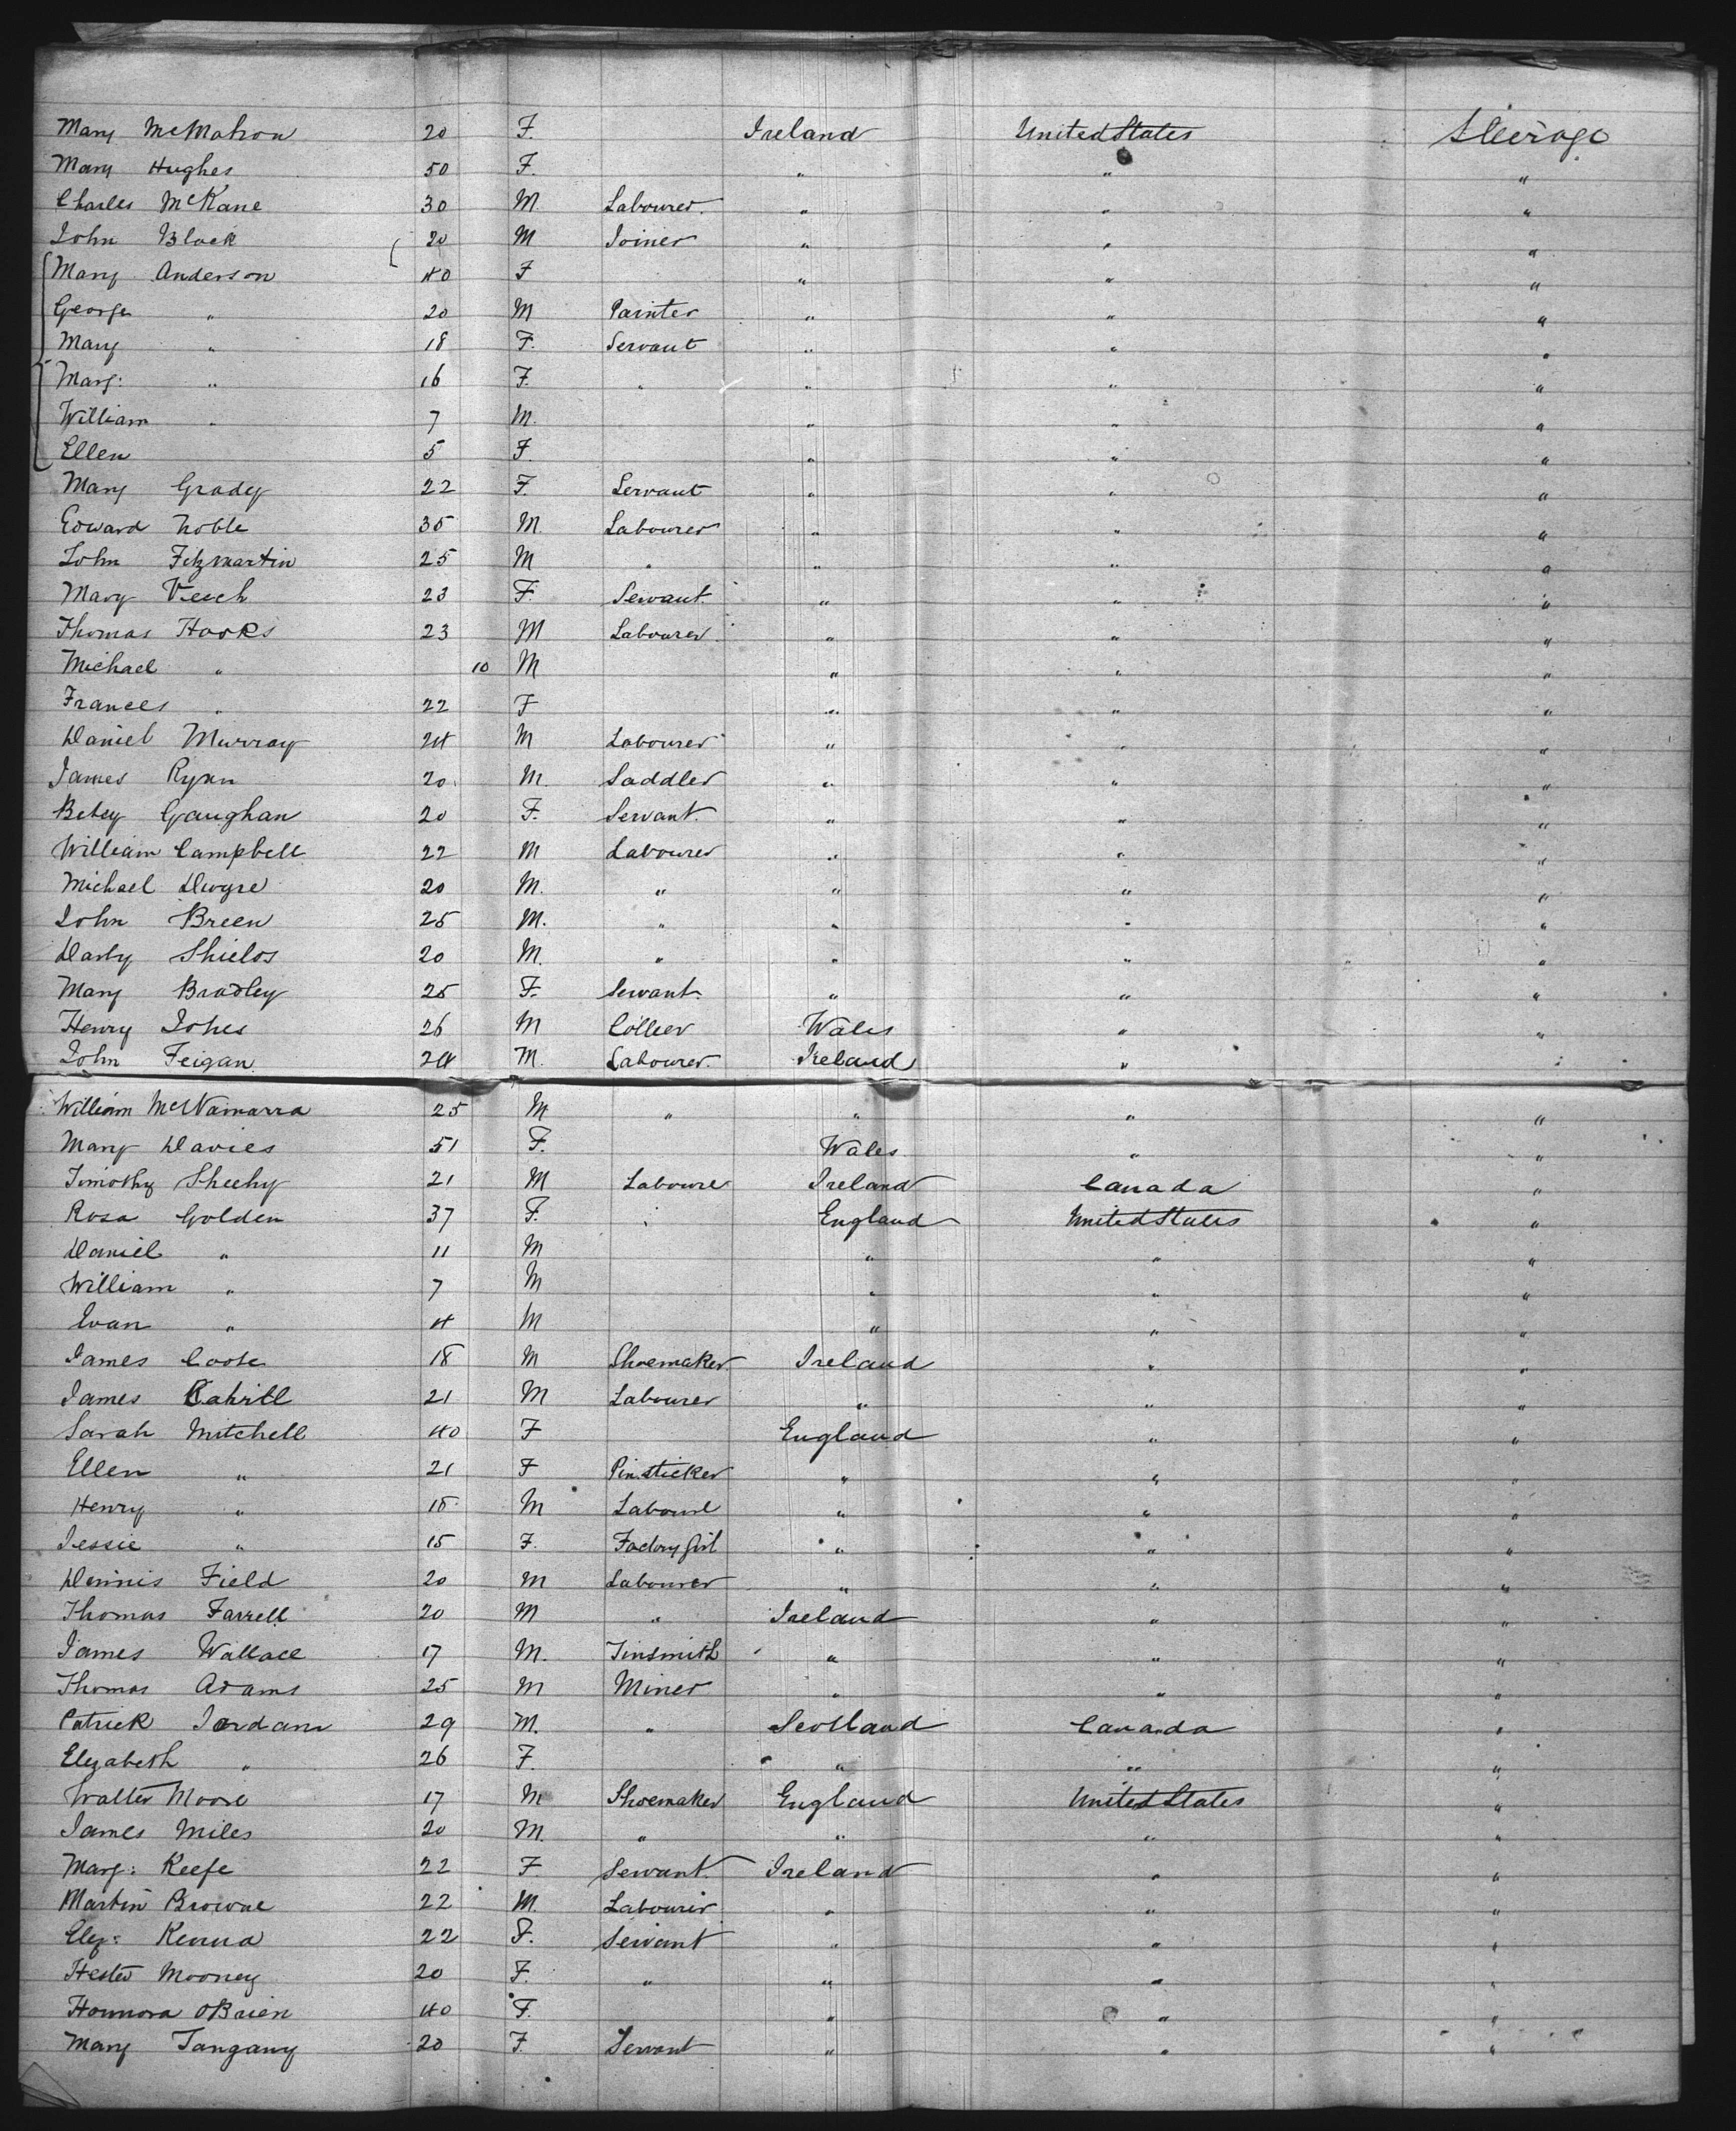 Mary McMahon 20 F. Ireland United States Steerage
Mary Hughes 50 F. " " "
Charles McKane 30 M. Labourer. " " "
John Black 20 M Joiner " " "
Mary Anderson 40 F " " "
George " 20 M Painter " " "
Mary " 18 F. Servant " " "
Marg: " 16 F. " " " "
William " 7 M. " " "
Ellen 5 F. " " "
Mary Grady 22 F. Servant " " "
Edward Noble 35 M. Labourer " " "
John Fitzmartin 25 M " " " "
Mary Veech 23 F. Servant. " " "
Thomas Hooks 23 M Labourer. " " "
Michael " 10 M " " "
Frances " 22 F " " "
Daniel Murray 24 M Labourer " " "
James Ryan 20 M. Saddler " " "
Betsy Gaughan 20 F. Servant. " " "
William Campbell 22 M Labourer " " "
Michael Dwyre 20 M. " " " "
John Breen 25 M. " " " "
Darby Shields 20 M. " " " "
Mary Bradley 25 F. Servant. " " "
Henry Johes 26 M Collier Wales " "
John Feigan 24 M. Labourer. Ireland "
William McNamarra 25 M " " " "
Mary Davies 51 F. Wales " "
Timothy Sheehy 21 M Laboure Ireland Canada "
Rosa Golden 37 F. England United States "
Daniel " 11 M " " "
William " 7 M " " "
Evan " 4 M " " "
James Coote 18 M Shoemaker. Ireland " "
James Cahill 21 M Labourer " " "
Sarah Mitchell 40 F England " "
Ellen " 21 F Pinsticker " " "
Henry " 18 M Laboure " " "
Jessie " 15 F. Factory Girl " " "
Dennis Field 20 M Labourer " " "
Thomas Farrell 20 M " Ireland " "
James Wallace 17 M. Tinsmith " " "
Thomas Adams 25 M Miner " " "
Patrick Jordan 29 M. " Scotland Canada "
Elizabeth " 26 F. " " "
Walter Moore 17 M Shoemaker England United States "
James Miles 20 M. " " " "
Marg: Keefe 22 F Servant. Ireland " "
Martin Browne 22 M. Labourer " " "
Eliz: Kenna 22 F. Servant " " "
Hester Mooney 20 F. " " " "
Honnora OBrien 40 F. " " "
Mary Tangany 20 F. Servant " " "